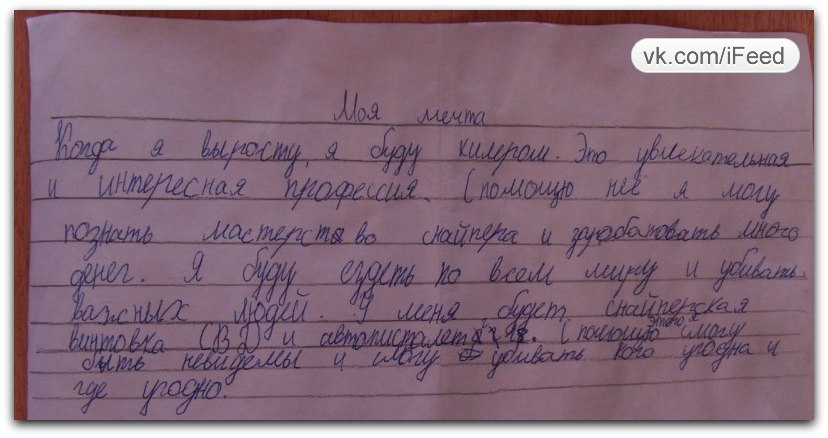 vk.com/iFeed
Моя мечта
Когда я выросту, я буду килером. Это увлекательная
и интересная профессия. С помощю неё я могу
познать мастерство снайпера и зарабатовать много
денег. Я буду ездеть по всем миру и убивать
важных людей. У меня будет снайперская
винтовка (ВД) и автопистолет. С помощю этого я смогу
быть невидемы и смогу убивать кого угодна и
где угодно.